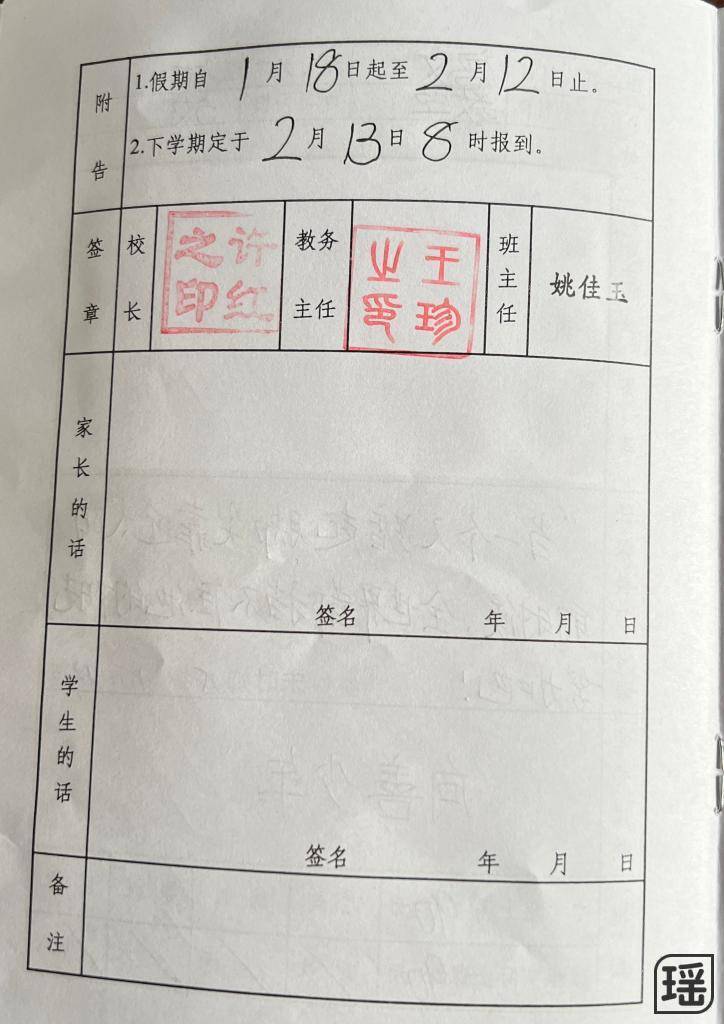 附告
1.假期自 1 月 18 日起至 2 月 12 日止。
2.下学期定于 2 月 13 日 8 时报到。
签章
校长
许红之印
教务主任
王珍之印
班主任
姚佳玉
家长的话
签名 年 月 日
学生的话
签名 年 月 日
备注
瑶